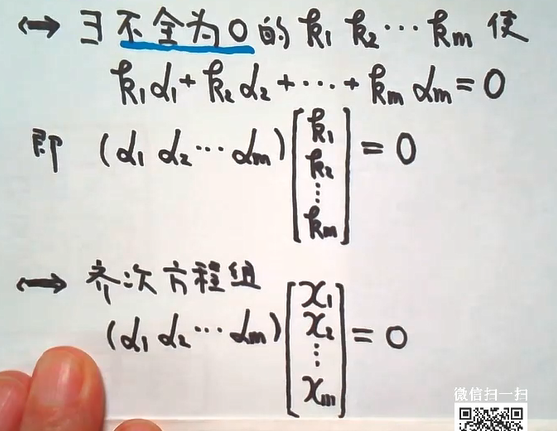 ⟷ ∃ 不全为0 的 k₁ k₂ ⋯ kₘ 使
k₁α₁ + k₂α₂ + ⋯ + kₘαₘ = 0
即 (α₁ α₂ ⋯ αₘ) [k₁ k₂ ⋮ kₘ] = 0
⟷ 齐次方程组
(α₁ α₂ ⋯ αₘ) [x₁ x₂ ⋮ xₘ] = 0
微信扫一扫